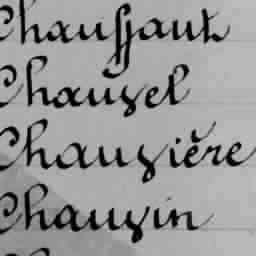 Chaussant
Chauvel
Chauvière
Chauvin